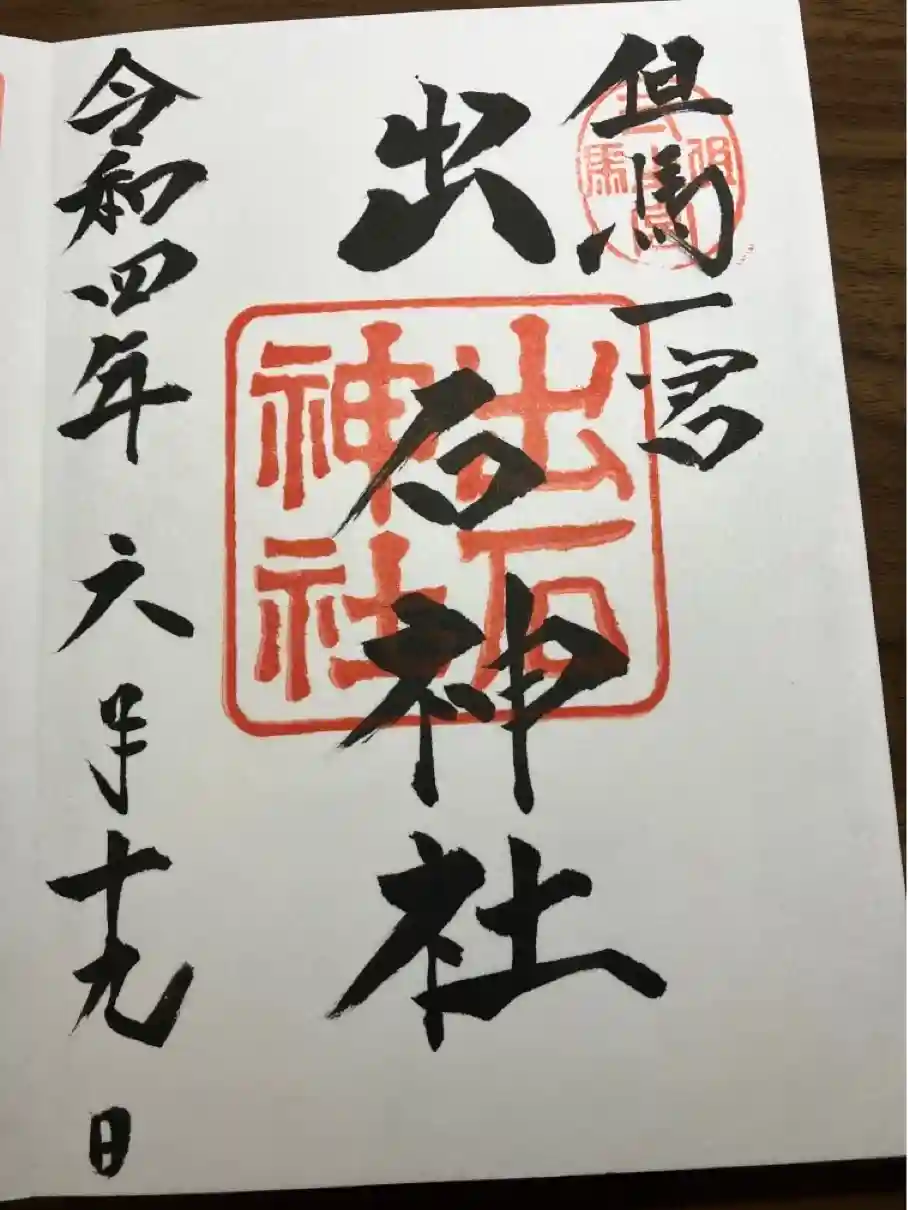 但馬一宮
出石神社
出石
神社
令和四年六月十九日